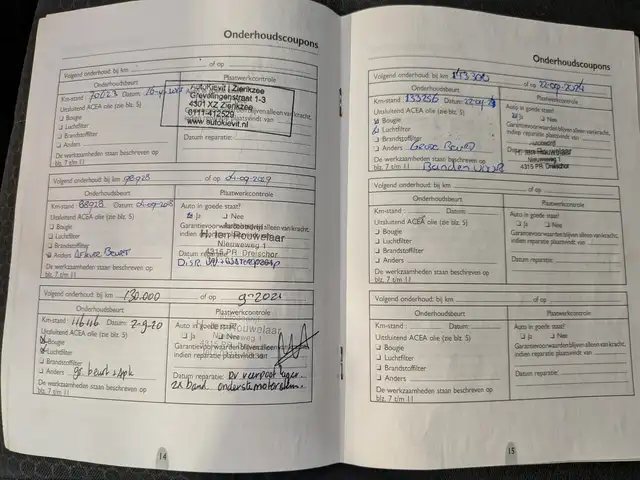 Onderhoudscoupons
Volgend onderhoud bij km of op
Onderhoudsbeurt Plaatwerkcontrole
Km-stand : 70623 Datum:
Uitsluitend ACEA olie (zie blz. 5)
Bougie
Luchtfilter
Brandstoffilter
Anders
De werkzaamheden staan beschreven op
blz. 7 t/m 11
Autokievit | Zierikzee
Grevelingenstraat 1-3
4301 XZ Zierikzee
0111-412529
www.autokievit.nl
Datum reparatie:
Volgend onderhoud bij km 98928 of op 04-09-2019
Onderhoudsbeurt Plaatwerkcontrole
Km-stand : 88928 Datum: 04-09-2018
Uitsluitend ACEA olie (zie blz. 5)
Bougie
Luchtfilter
Brandstoffilter
Anders Beurt
De werkzaamheden staan beschreven op
blz. 7 t/m 11
Auto in goede staat?
Ja Nee
Garantievoorwaarden blijven alleen van kracht,
H. ten Rouwelaar
Nieuweweg 1
4315 PR Dreischor
Datum reparatie
Volgend onderhoud bij km 130.000 of op 9-2021
Onderhoudsbeurt Plaatwerkcontrole
Km-stand : 116116 Datum: 2-9-20
Uitsluitend ACEA olie (zie blz. 5)
Bougie
Luchtfilter
Brandstoffilter
Anders gr. beurt + apk
De werkzaamheden staan beschreven op
blz. 7 t/m 11
Auto in goede staat?
Ja Nee
Garantievoorwaarden blijven alleen van kracht,
indien reparatie plaatsvindt van
Datum reparatie:
2x band
14
Onderhoudscoupons
Volgend onderhoud bij km 143300 of op 22-09-2024
Onderhoudsbeurt Plaatwerkcontrole
Km-stand : 133256 Datum:
Uitsluitend ACEA olie (zie blz. 5)
Bougie
Luchtfilter
Brandstoffilter
Anders Beurt
De werkzaamheden staan beschreven op
blz. 7 t/m 11 Banden
Auto in goede staat?
Ja Nee
Garantievoorwaarden blijven alleen van kracht,
indien reparatie plaatsvindt van
H. ten Rouwelaar
Nieuweweg 1
4315 PR Dreischor
Volgend onderhoud bij km of op
Onderhoudsbeurt Plaatwerkcontrole
Km-stand : Datum:
Uitsluitend ACEA olie (zie blz. 5)
Bougie
Luchtfilter
Brandstoffilter
Anders
De werkzaamheden staan beschreven op
blz. 7 t/m 11
Auto in goede staat?
Ja Nee
Garantievoorwaarden blijven alleen van kracht,
indien reparatie plaatsvindt van
Datum reparatie:
Volgend onderhoud bij km of op
Onderhoudsbeurt Plaatwerkcontrole
Km-stand : Datum:
Uitsluitend ACEA olie (zie blz. 5)
Bougie
Luchtfilter
Brandstoffilter
Anders
De werkzaamheden staan beschreven op
blz. 7 t/m 11
Auto in goede staat?
Ja Nee
Garantievoorwaarden blijven alleen van kracht,
indien reparatie plaatsvindt van
Datum reparatie:
15